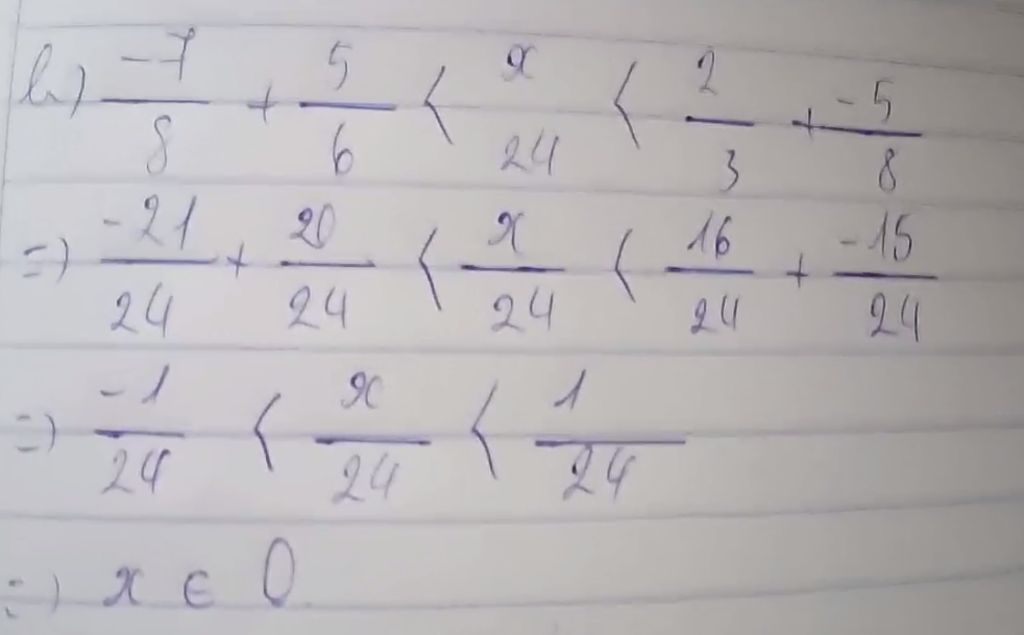 b) -7/8 + 5/6 < x/24 < 2/3 + -5/8
=) -21/24 + 20/24 < x/24 < 16/24 + -15/24
=) -1/24 < x/24 < 1/24
=) x ∈ 0